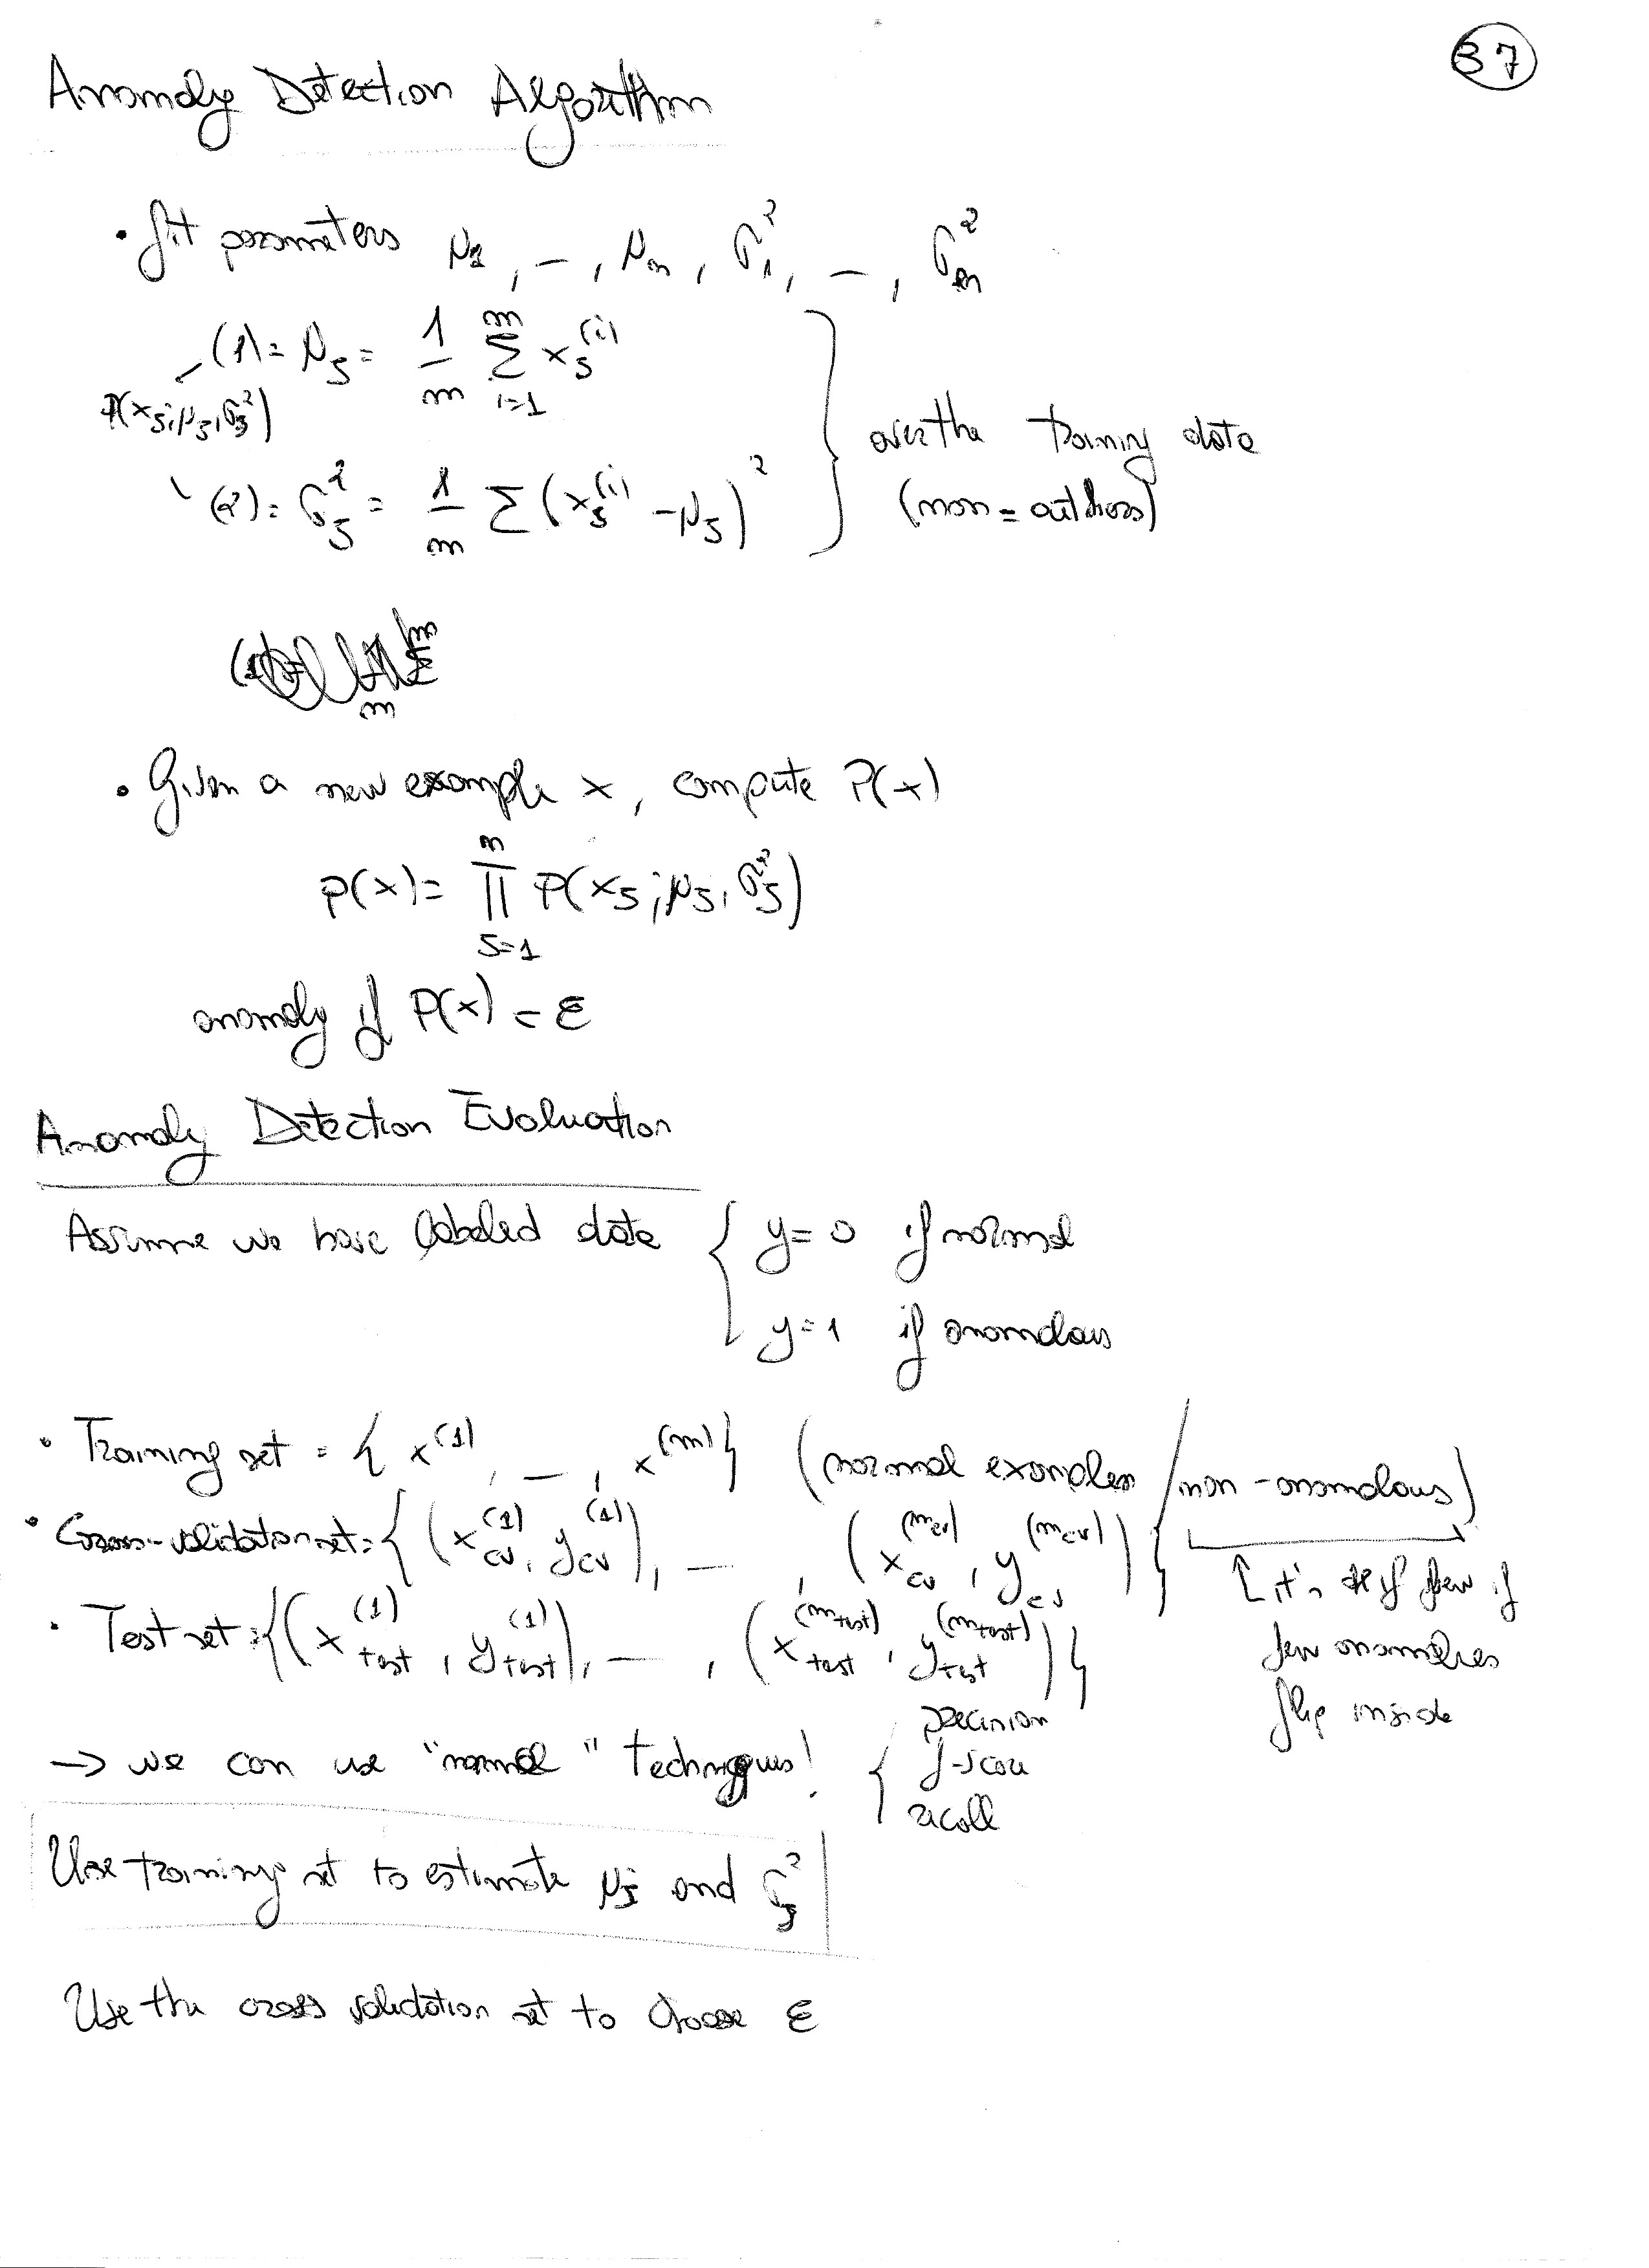 37
Anomaly Detection Algorithm
• fit parameters μ1, –, μn, σ1², –, σn²
(1) = μj = 1/m Σ_{i=1}^{m} xj^(i)
P(xj; μj, σj²)
over the training data
(2) = σj² = 1/m Σ (xj^(i) - μj)²
(non = outliers)
• Given a new example x, compute P(x)
P(x) = ∏_{j=1}^{n} P(xj; μj, σj²)
anomaly if P(x) < ε
Anomaly Detection Evaluation
Assume we have labeled data { y = 0 if normal
y = 1 if anomalous
• Training set = { x^(1), –, x^(m) } (normal examples / non-anomalous)
• Cross-validation set = { (x_cv^(1), y_cv^(1)), –, (x_cv^(m_cv), y_cv^(m_cv)) }
it's if few if
• Test set = { (x_test^(1), y_test^(1)), –, (x_test^(m_test), y_test^(m_test)) }
few anomalies
slip inside
→ we can use "normal" techniques! { precision
f-score
recall
Use training set to estimate μj and σj²
Use the cross validation set to choose ε